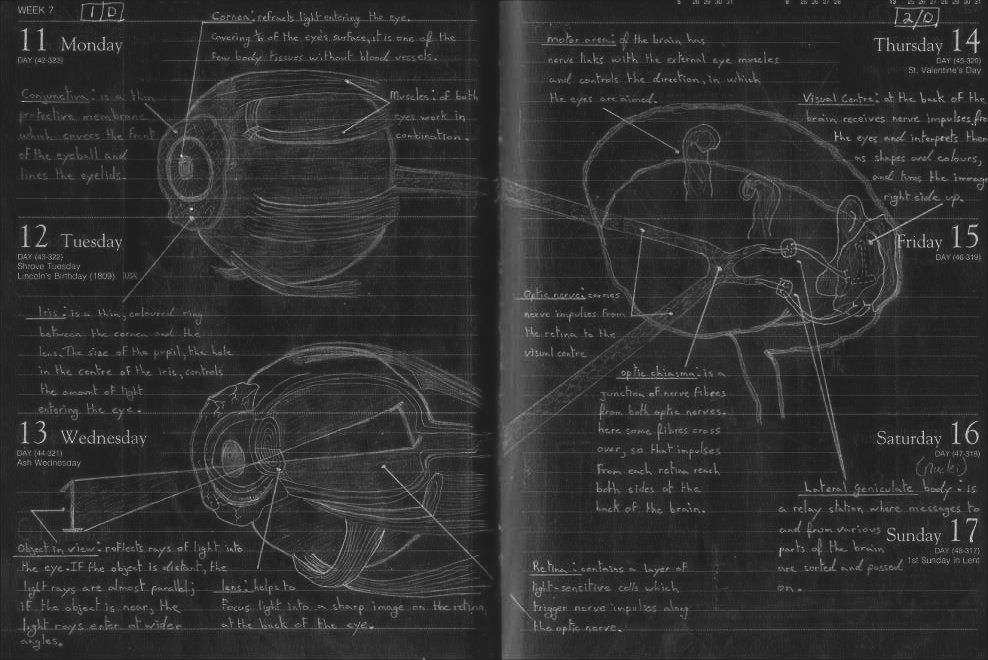 WEEK 7
1/D
11 Monday
DAY (42-323)
Cornea: refracts light entering the eye.
Covering ⅙ of the eyes surface, it is one of the
few body tissues without blood vessels.
Conjunctiva: is a thin
protective membrane
which covers the front
of the eyeball and
lines the eyelids.
Muscles: of both
eyes work in
combination.
12 Tuesday
DAY (43-322)
Shrove Tuesday
Lincoln's Birthday (1809) USA
Iris: is a thin, coloured ring
between the cornea and the
lens. The size of the pupil, the hole
in the centre of the iris, controls
the amount of light
entering the eye.
13 Wednesday
DAY (44-321)
Ash Wednesday
Object in view: reflects rays of light into
the eye. If the object is distant, the
light rays are almost parallel;
if the object is near, the
light rays enter at wider
angles.
lens: helps to
focus light into a sharp image on the retina
at the back of the eye.
2/D
motor area: of the brain has
nerve links with the external eye muscles
and controls the direction, in which
the eyes are aimed.
Thursday 14
DAY (45-320)
St. Valentine's Day
Visual Centre: at the back of the
brain receives nerve impulses from
the eyes and interprets them
as shapes and colours,
and turns the image
right side up.
Friday 15
DAY (46-319)
Optic nerve: carries
nerve impulses from
the retina to the
visual centre
optic chiasma: is a
junction of nerve fibres
from both optic nerves.
here some fibres cross
over, so that impulses
from each retina reach
both sides of the
back of the brain.
Saturday 16
DAY (47-318)
(Nuclei)
Lateral geniculate body: is
a relay station where messages to
and from various
parts of the brain
are sorted and passed
on.
Sunday 17
DAY (48-317)
1st Sunday in Lent
Retina: contains a layer of
light-sensitive cells which
trigger nerve impulses along
the optic nerve.